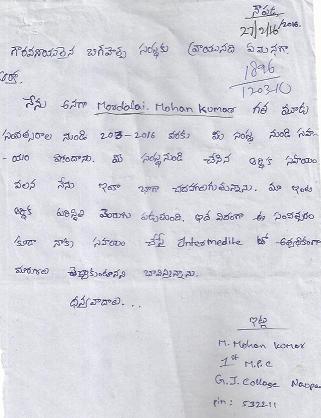 నౌపడ,
27/2/16/2016.
గౌరవనీయులైన సంస్థకు
1896
120310
నేను అనగా Mordalai. Mohan Kumar గత మూడు
సంవత్సరాల నుండి 2013-2016 వరకు మీ సంస్థ నుండి సహా
-యం పొందాను. మీ సంస్థనుండి చేసిన ఆర్థిక సహాయం
వలన నేను ఇంకా బాగా చదవగలుగుతున్నాను. మా ఇంటి
ఆర్థిక పరిస్థితి ఈ సంవత్సరం
కూడా నాకు సహాయం చేస్తే Intermediate లో అత్యధికంగా
మార్కులు తెచ్చుకుంటానని భావిస్తున్నాను.
ధన్యవాదాలు...
ఇట్లు
M. Mohan Kumar
1st M.P.C
G.J. College Naupa
pin: 532211